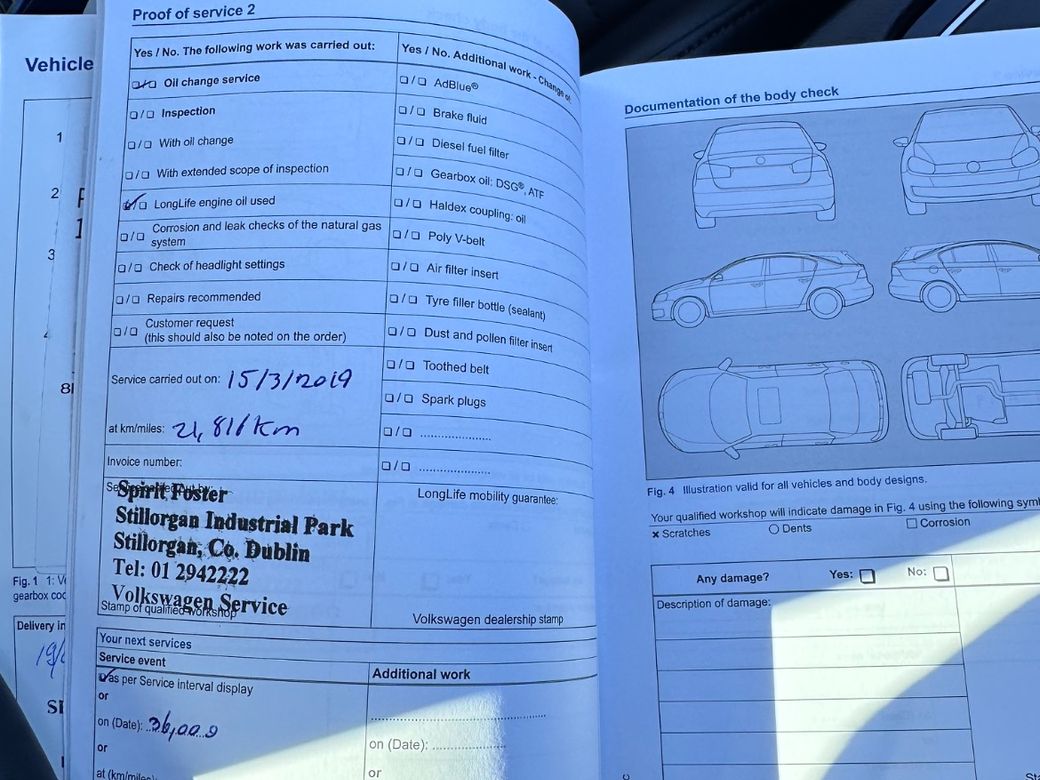 Vehicle
1
2
3
8
Fig. 1 1:
gearbox
Delivery in
Proof of service 2
Yes / No. The following work was carried out:
❑/❑ Oil change service
❑/❑ Inspection
❑/❑ With oil change
❑/❑ With extended scope of inspection
❑/❑ LongLife engine oil used
❑/❑ Corrosion and leak checks of the natural gas
system
❑/❑ Check of headlight settings
❑/❑ Repairs recommended
❑/❑ Customer request
(this should also be noted on the order)
Service carried out on: 15/3/2019
at km/miles: 21,811 km
Invoice number:
Spirit Foster
Stillorgan Industrial Park
Stillorgan, Co. Dublin
Tel: 01 2942222
Volkswagen Service
Stamp of qualified workshop
Yes / No. Additional work - Change of
❑/❑ AdBlue®
❑/❑ Brake fluid
❑/❑ Diesel fuel filter
❑/❑ Gearbox oil: DSG®, ATF
❑/❑ Haldex coupling: oil
❑/❑ Poly V-belt
❑/❑ Air filter insert
❑/❑ Tyre filler bottle (sealant)
❑/❑ Dust and pollen filter insert
❑/❑ Toothed belt
❑/❑ Spark plugs
❑/❑ ....................
❑/❑ ....................
LongLife mobility guarantee:
Volkswagen dealership stamp
Your next services
Service event
as per Service interval display
or
on (Date):
or
at (km/miles):
Additional work
....................
on (Date): ....................
or
Documentation of the body check
Fig. 4 Illustration valid for all vehicles and body designs.
Your qualified workshop will indicate damage in Fig. 4 using the following
× Scratches ○ Dents □ Corrosion
Any damage? Yes: ❑ No: ❑
Description of damage: